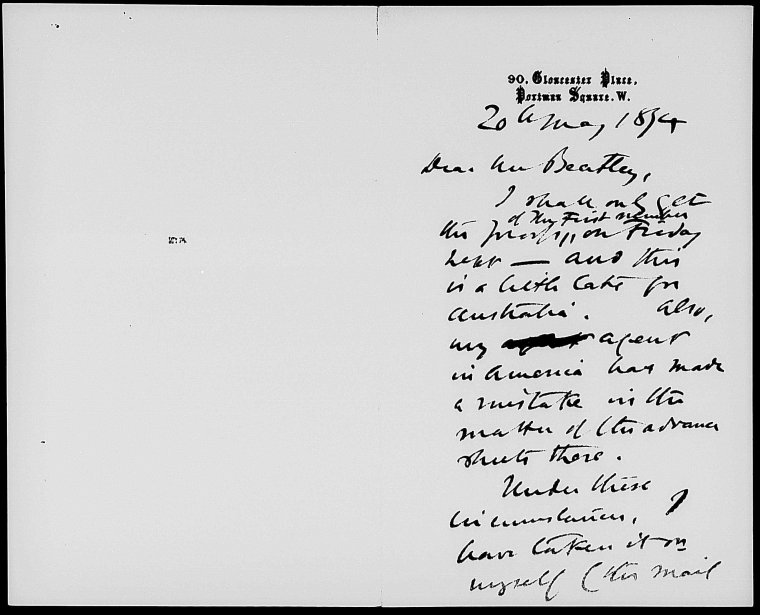 90. Gloucester Place,
Portman Square. W.
20th May 1884
Dear Mr Beatley,
I shall only get
of the First number
the proofs on Friday
next — and this
is a little late for
Australia. Also,
my agent
in America has made
a mistake in the
matter of the advance
sheets there.
Under these
circumstances, I
have taken it on
myself (this mail